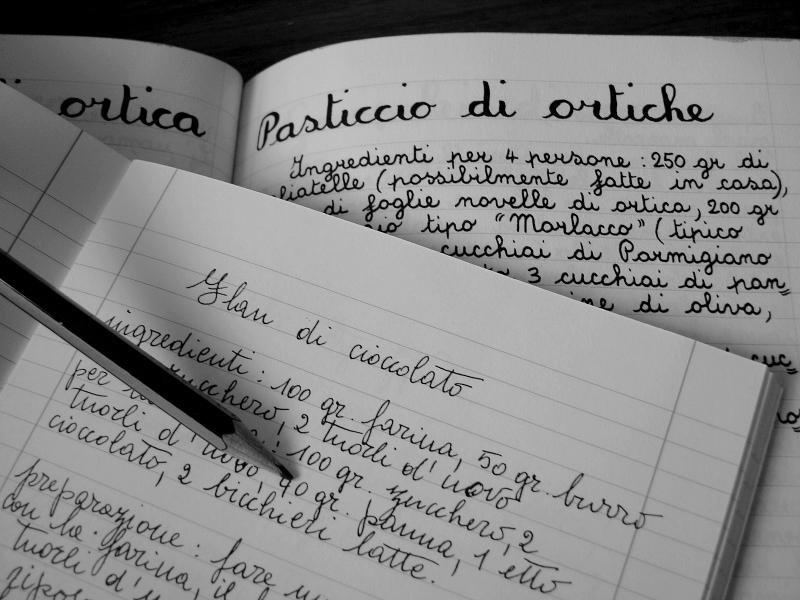 ortica
Pasticcio di ortiche
Ingredienti per 4 persone : 250 gr di
liatelle (possibilmente fatte in casa),
di foglie novelle di ortica, 200 gr
tipo "Morlacco" (tipico
cucchiai di Parmigiano
3 cucchiai di pan„
di oliva,
cuc„
Flan di cioccolato
ingredienti : 100 gr. farina, 50 gr. burro
zucchero, 2 tuorli d'uovo
per : 100 gr. zucchero, 2
tuorli d'uovo, 40 gr. panna, 1 etto
cioccolato, 2 bicchieri latte.
preparazione : fare
con la farina, il
tuorli d'